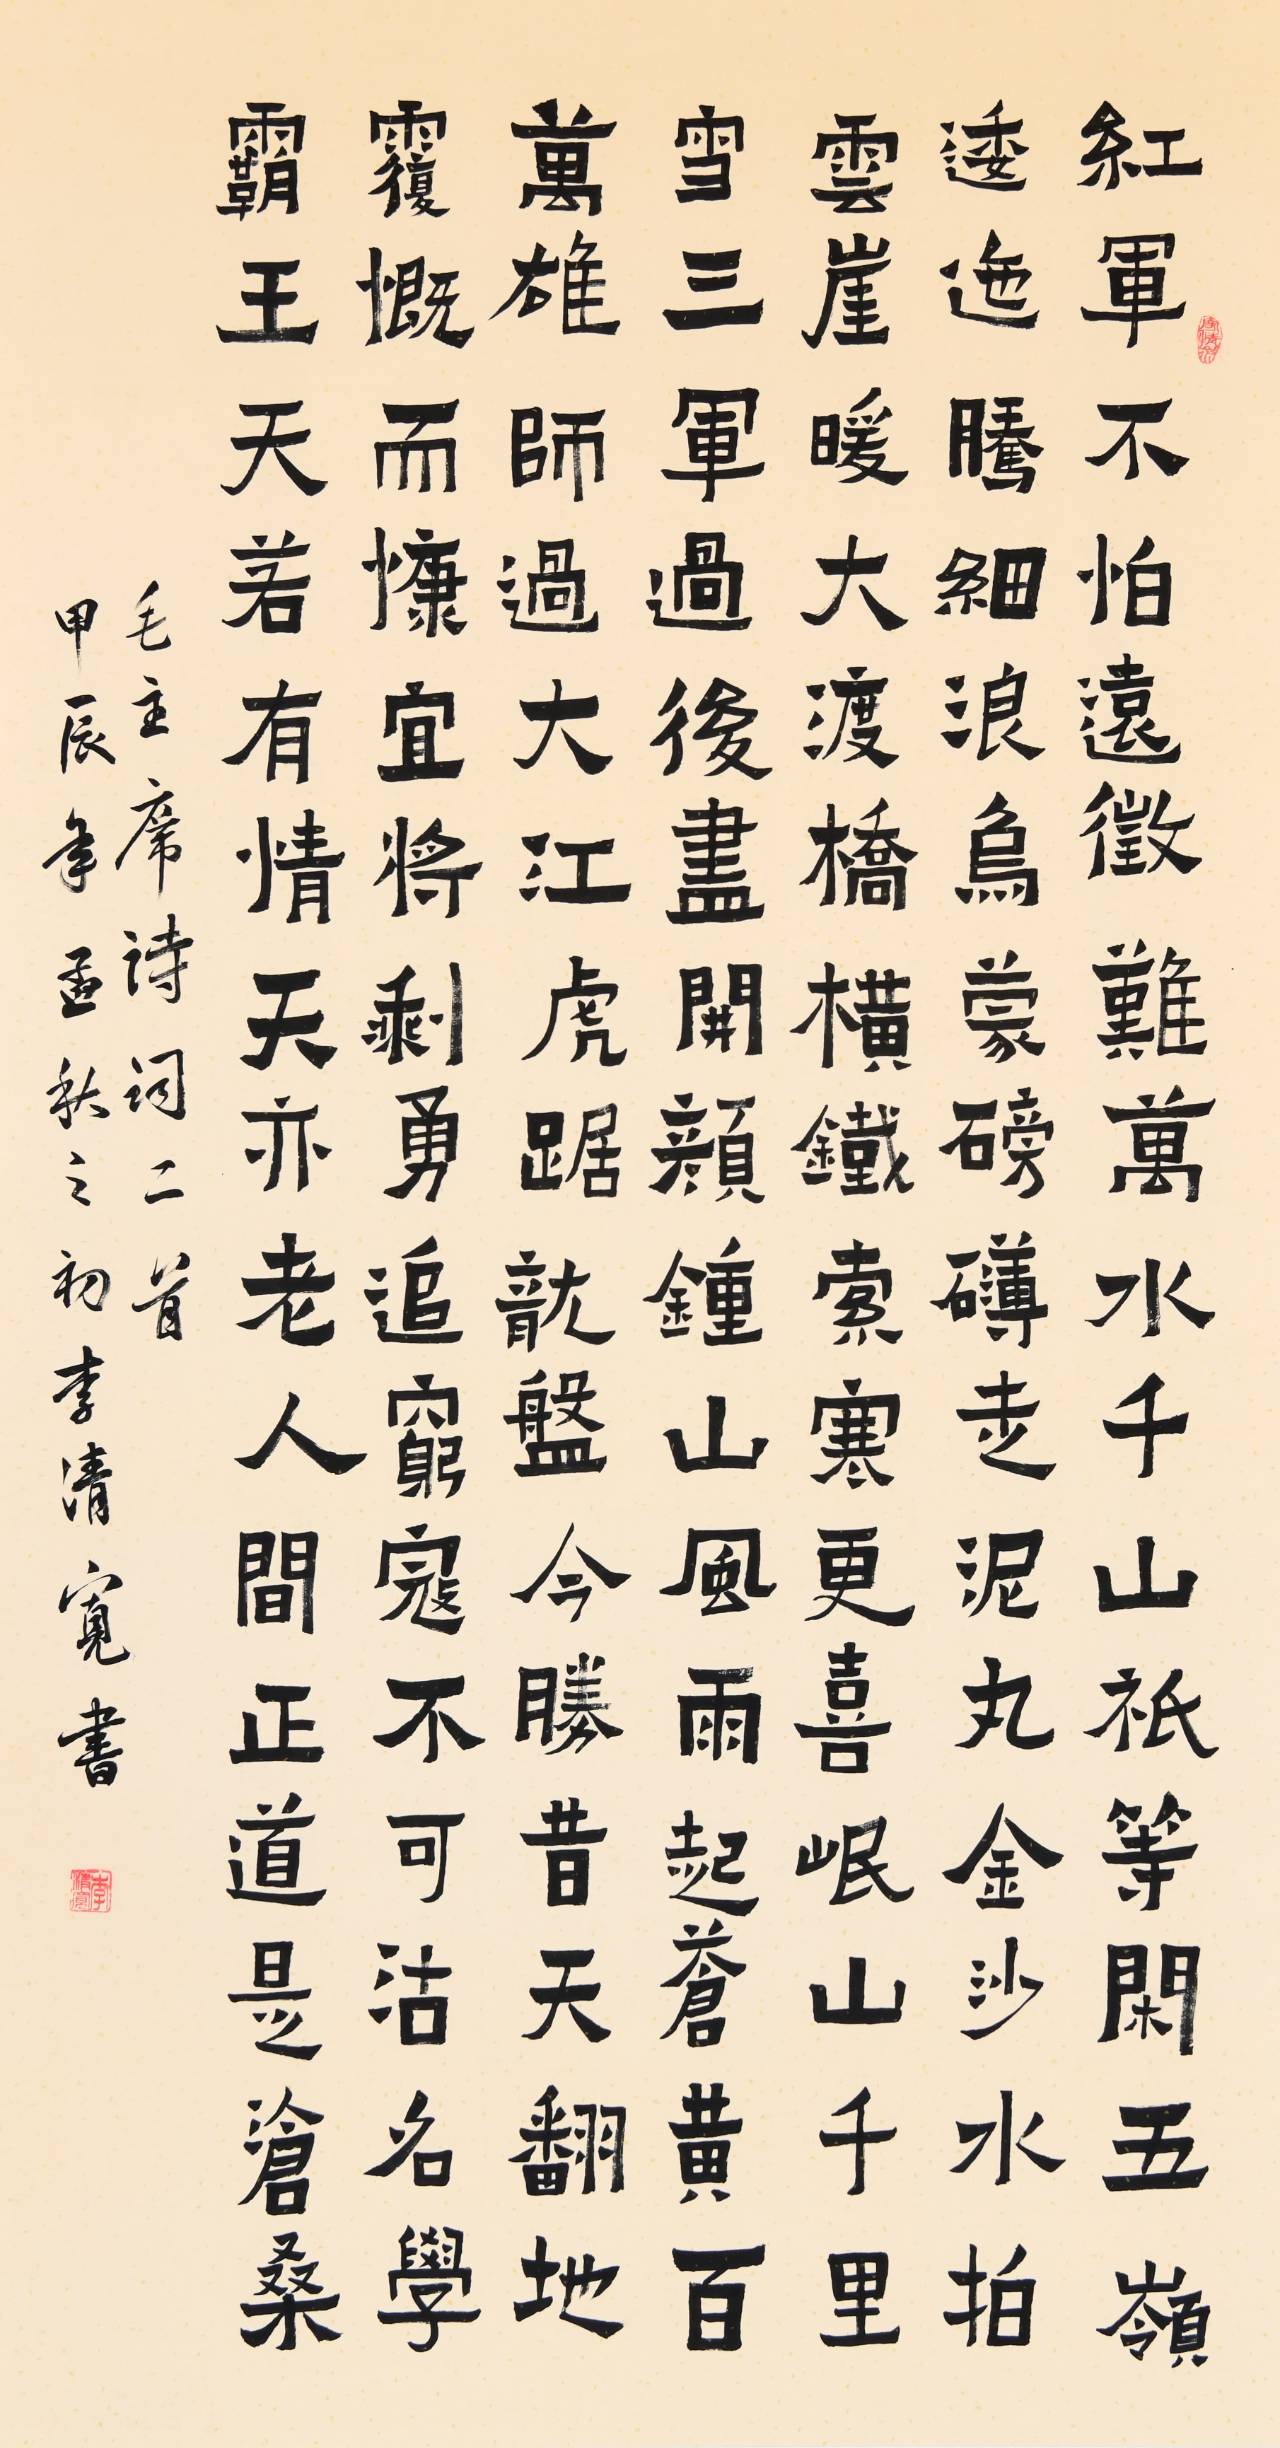 紅軍不怕遠徵難萬水千山祇等閑五嶺
逶迤騰細浪烏蒙磅礴走泥丸金沙水拍
雲崖暖大渡橋橫鐵索寒更喜岷山千里
雪三軍過後盡開顏鍾山風雨起蒼黃百
萬雄師過大江虎踞龍盤今勝昔天翻地
覆慨而慷宜將剩勇追窮寇不可沽名學
霸王天若有情天亦老人間正道是滄桑
毛主席詩詞二首
甲辰年孟秋之初李清寬書
李清寬